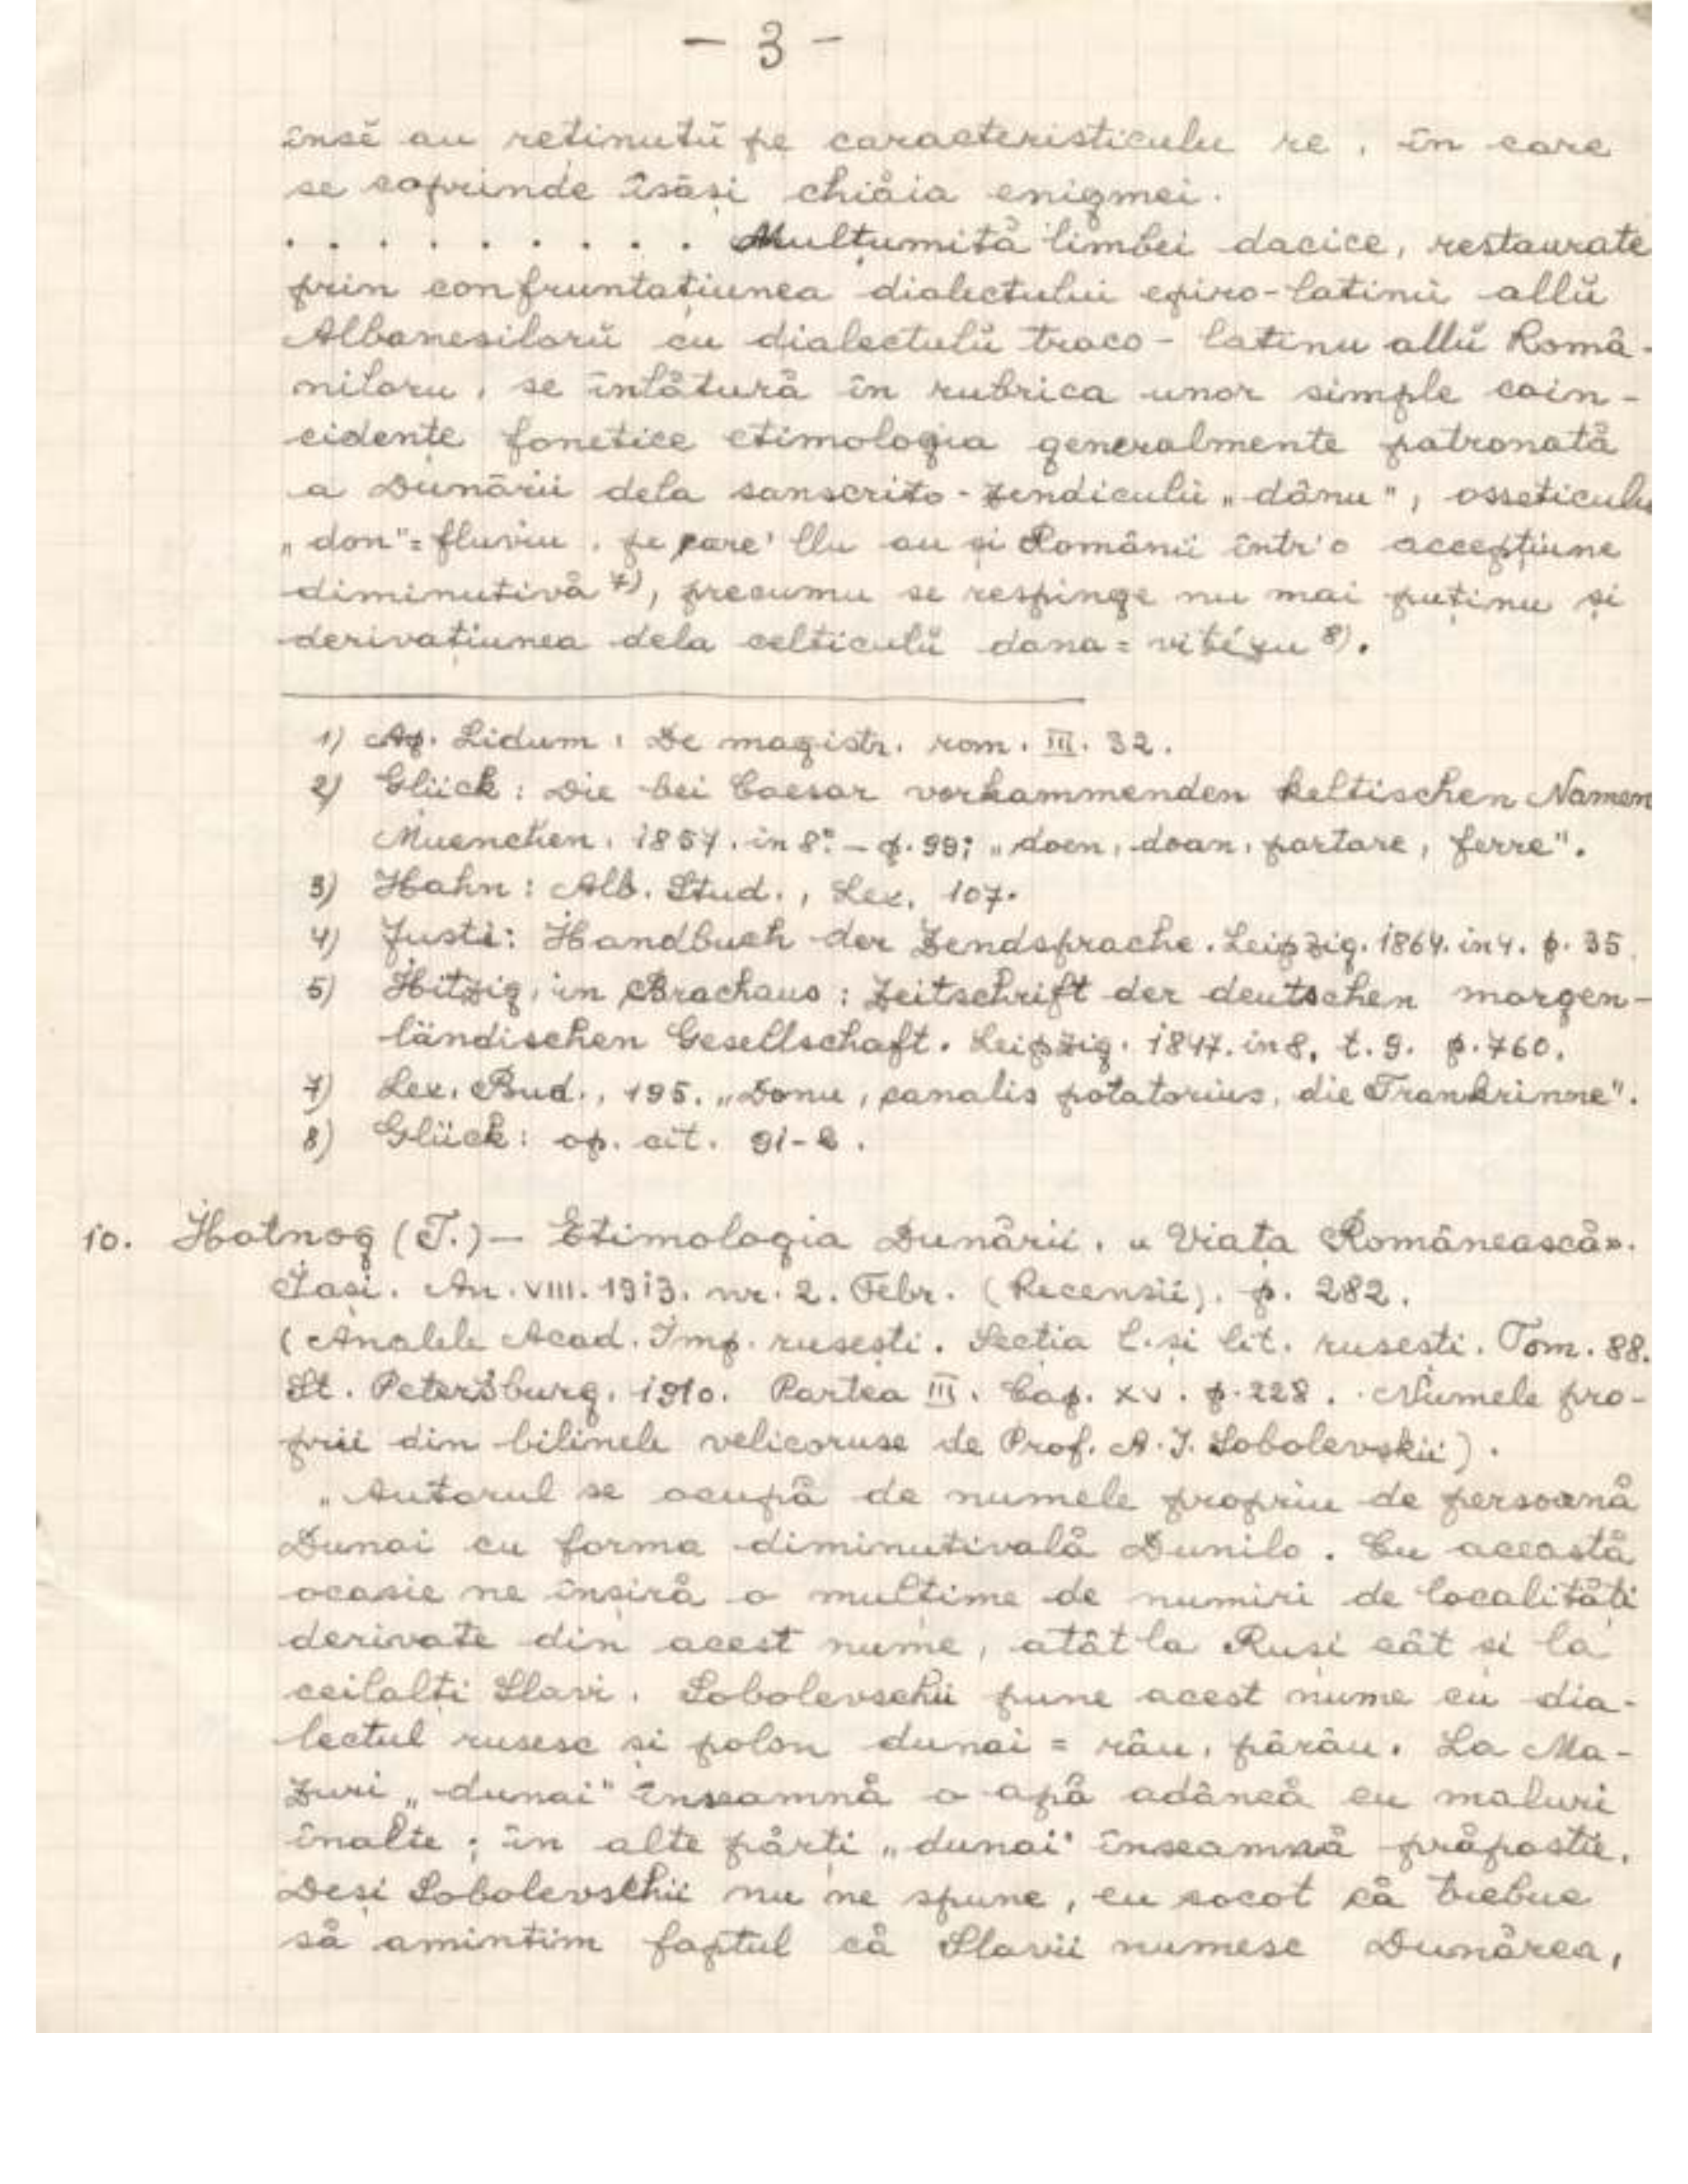 - 3 -
însĕ au reținutŭ pe caracteristiculu re, în care
se coprinde îsăși chiăia enigmei.
. . . . . . . . . Mulțumită limbei dacice, restaurate
prin confruntațiunea dialectului epiro-latinŭ allŭ
Albanesilorŭ cu dialectulŭ traco-latinu allŭ Româ-
niloru, se înlătură în rubrica unor simple coin-
cidențe fonetice etimologia generalmente patronată
a Dunării dela sanscrito-zendiculŭ „dânu", osseticulu
„don"= fluviu, pe care'llu au și Românii într'o accepțiune
diminutivă 7), precumu se respinge nu mai puținu și
derivațiunea dela celticulŭ dana = vitézu 8).
1) Ap. Lidum, De magistr. rom. III. 32.
2) Glück: Die bei Caesar vorkammenden keltischen Namen
Muenchen. 1857. in 8º. - p. 99; „doen, doan, portare, ferre".
3) Hahn: Alb. Stud., Lex. 107.
4) Justi: Handbuch der Zendsprache. Leipzig. 1864. in 4. p. 35.
5) Hitzig, in Brachaus: Zeitschrift der deutschen morgen-
ländischen Gesellschaft. Leipzig. 1847. in 8, t. 9. p. 760.
7) Lex. Bud., 195. „Donu, canalis potatorius, die Trankrinne".
8) Glück: op. cit. 91-2.
10. Hotnog (T.) - Etimologia Dunării. « Viața Românească».
Iași. An. VIII. 1913. nr. 2. Febr. (Recensii). p. 282.
(Analele Acad. Imp. rusești. Secția l. și lit. rusesti. Tom. 88.
St. Petersburg. 1910. Partea III. Cap. XV. p. 228. Numele pro-
prii din bilinele velicoruse de Prof. A. I. Sobolevskii).
„Autorul se ocupă de numele propriu de persoană
Dunai cu forma diminutivală Dunilo. Cu această
ocasie ne înșiră o mulțime de numiri de localități
derivate din acest nume, atât la Ruși cât și la
ceilalți Slavi. Sobolevschii pune acest nume cu dia-
lectul rusesc și polon dunai = râu, pârâu. La Ma-
zuri „dunai" înseamnă o apă adâncă cu maluri
înalte; în alte părți „dunai" înseamnă prăpastie.
Deși Sobolevschii nu ne spune, eu socot că trebue
să amintim faptul că Slavii numesc Dunărea,